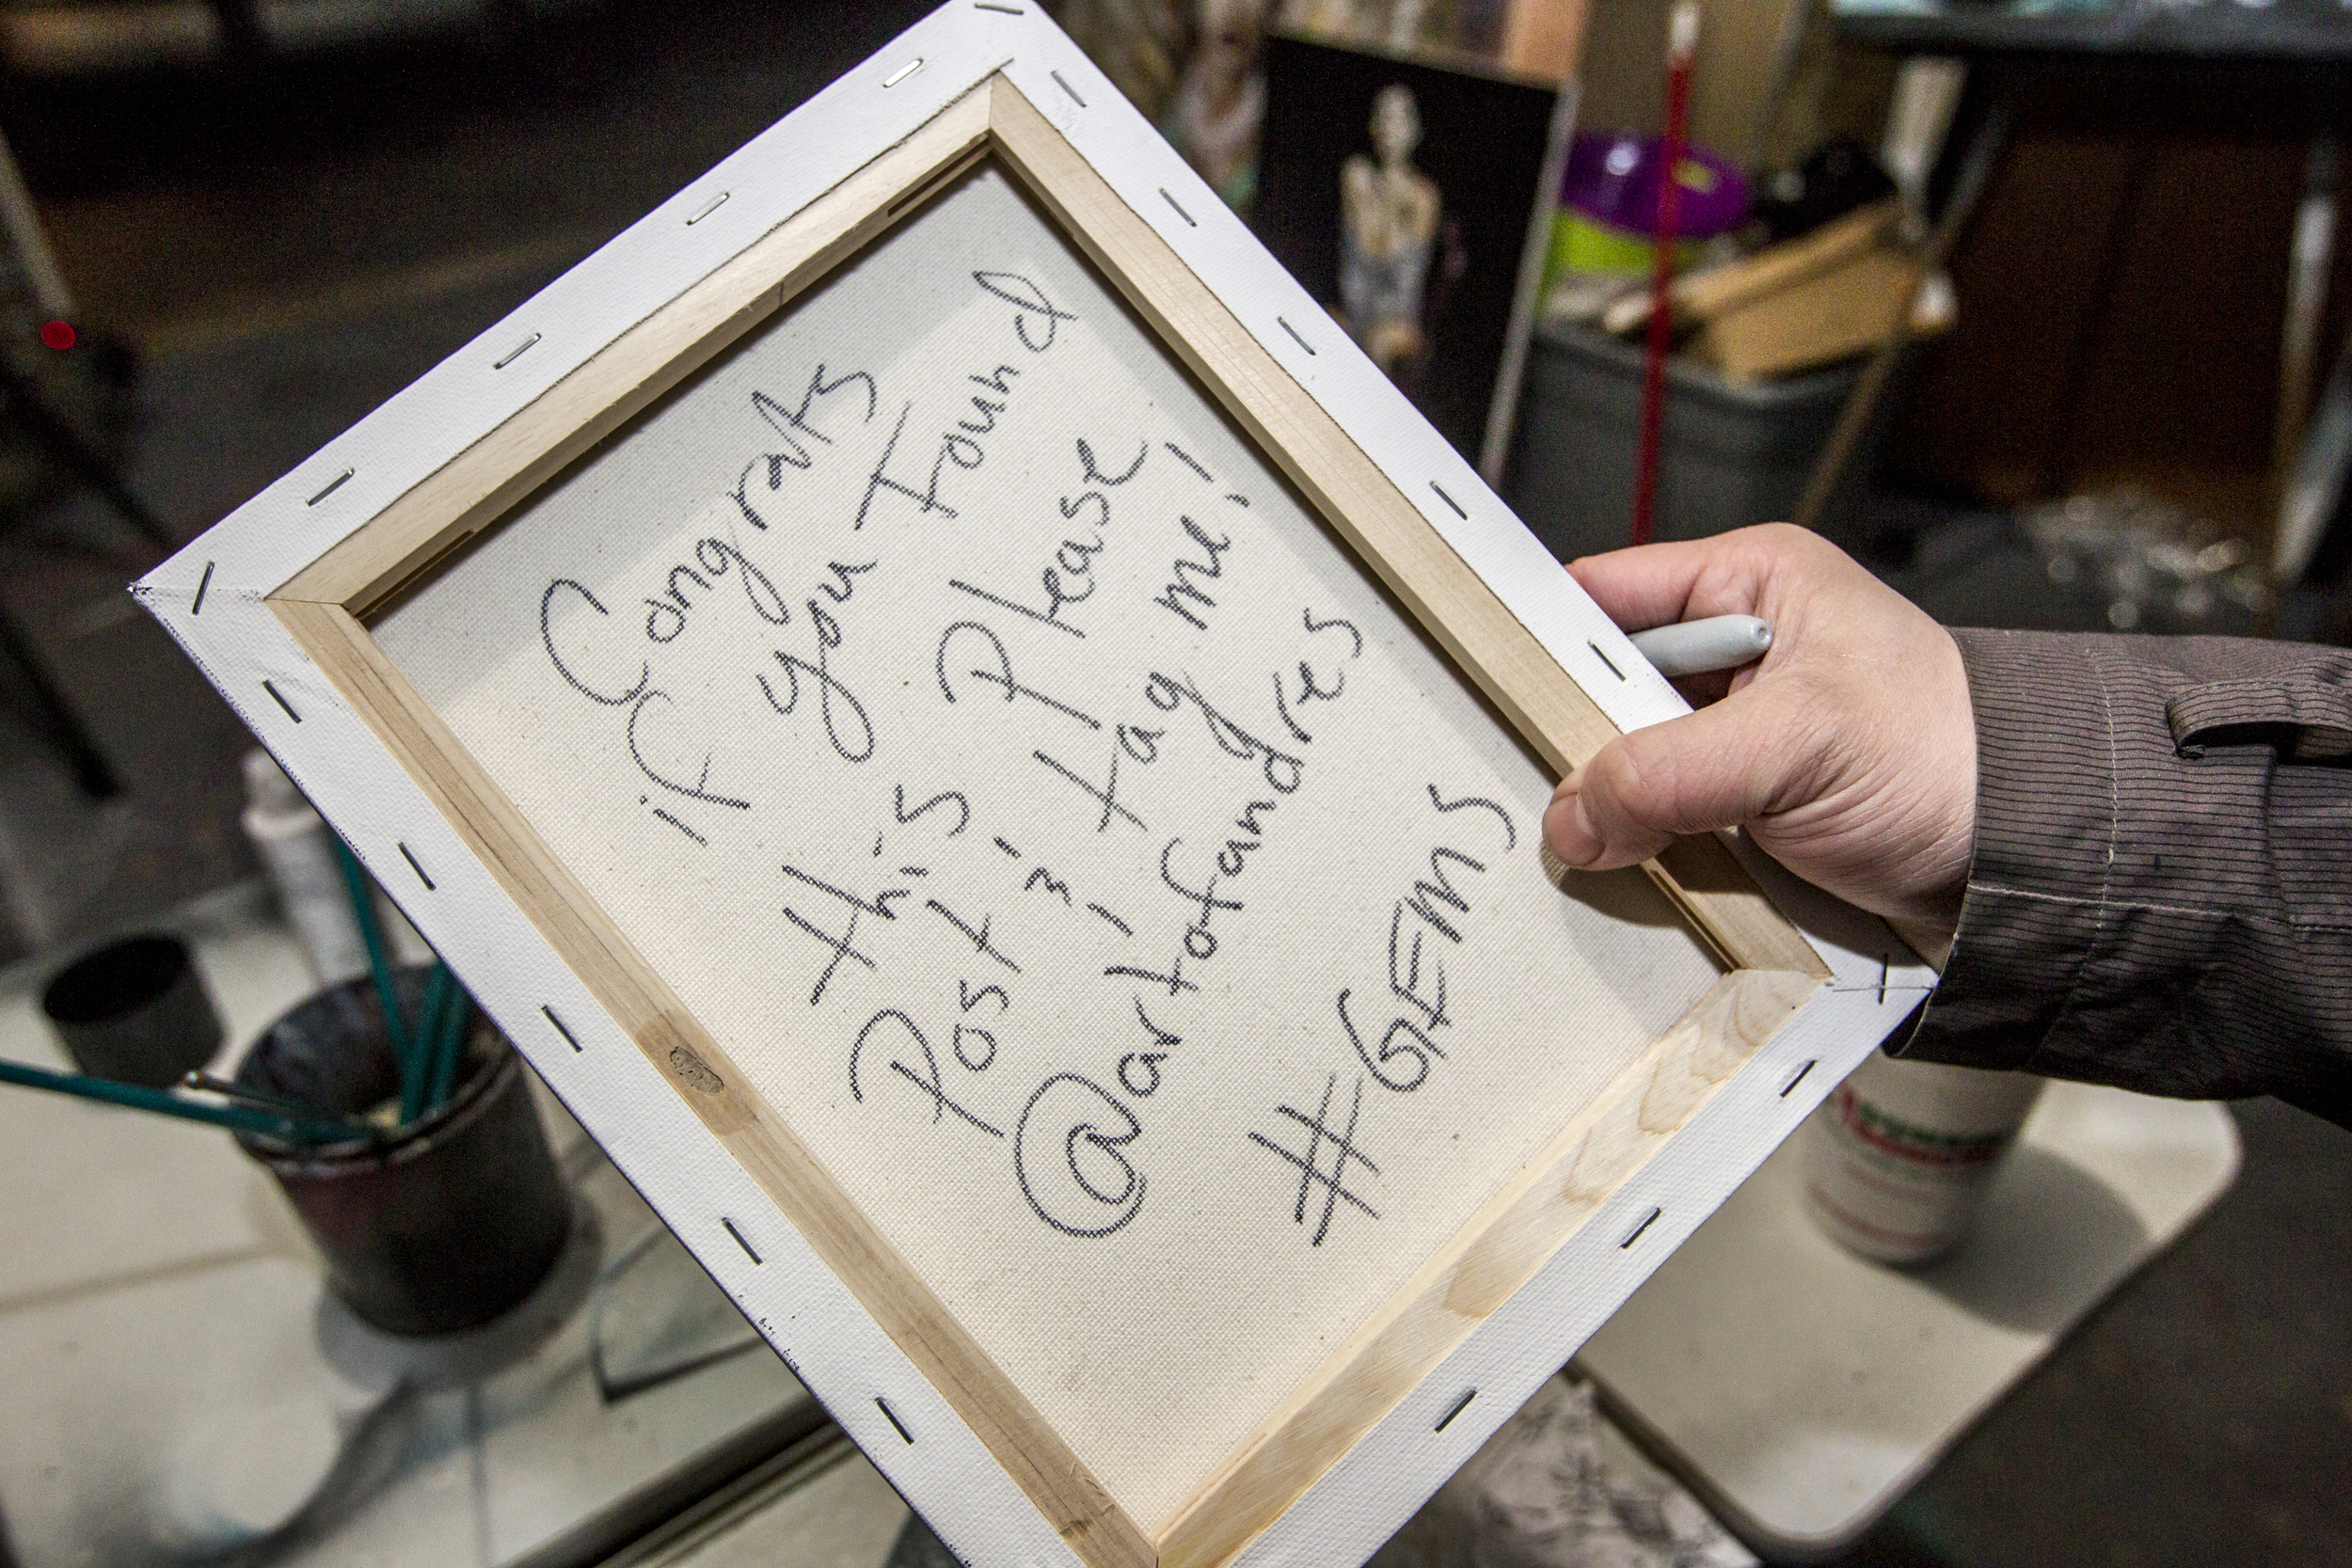 Congrats
if you found
this Please
Post it tag me!
@artofandres
#GEMS